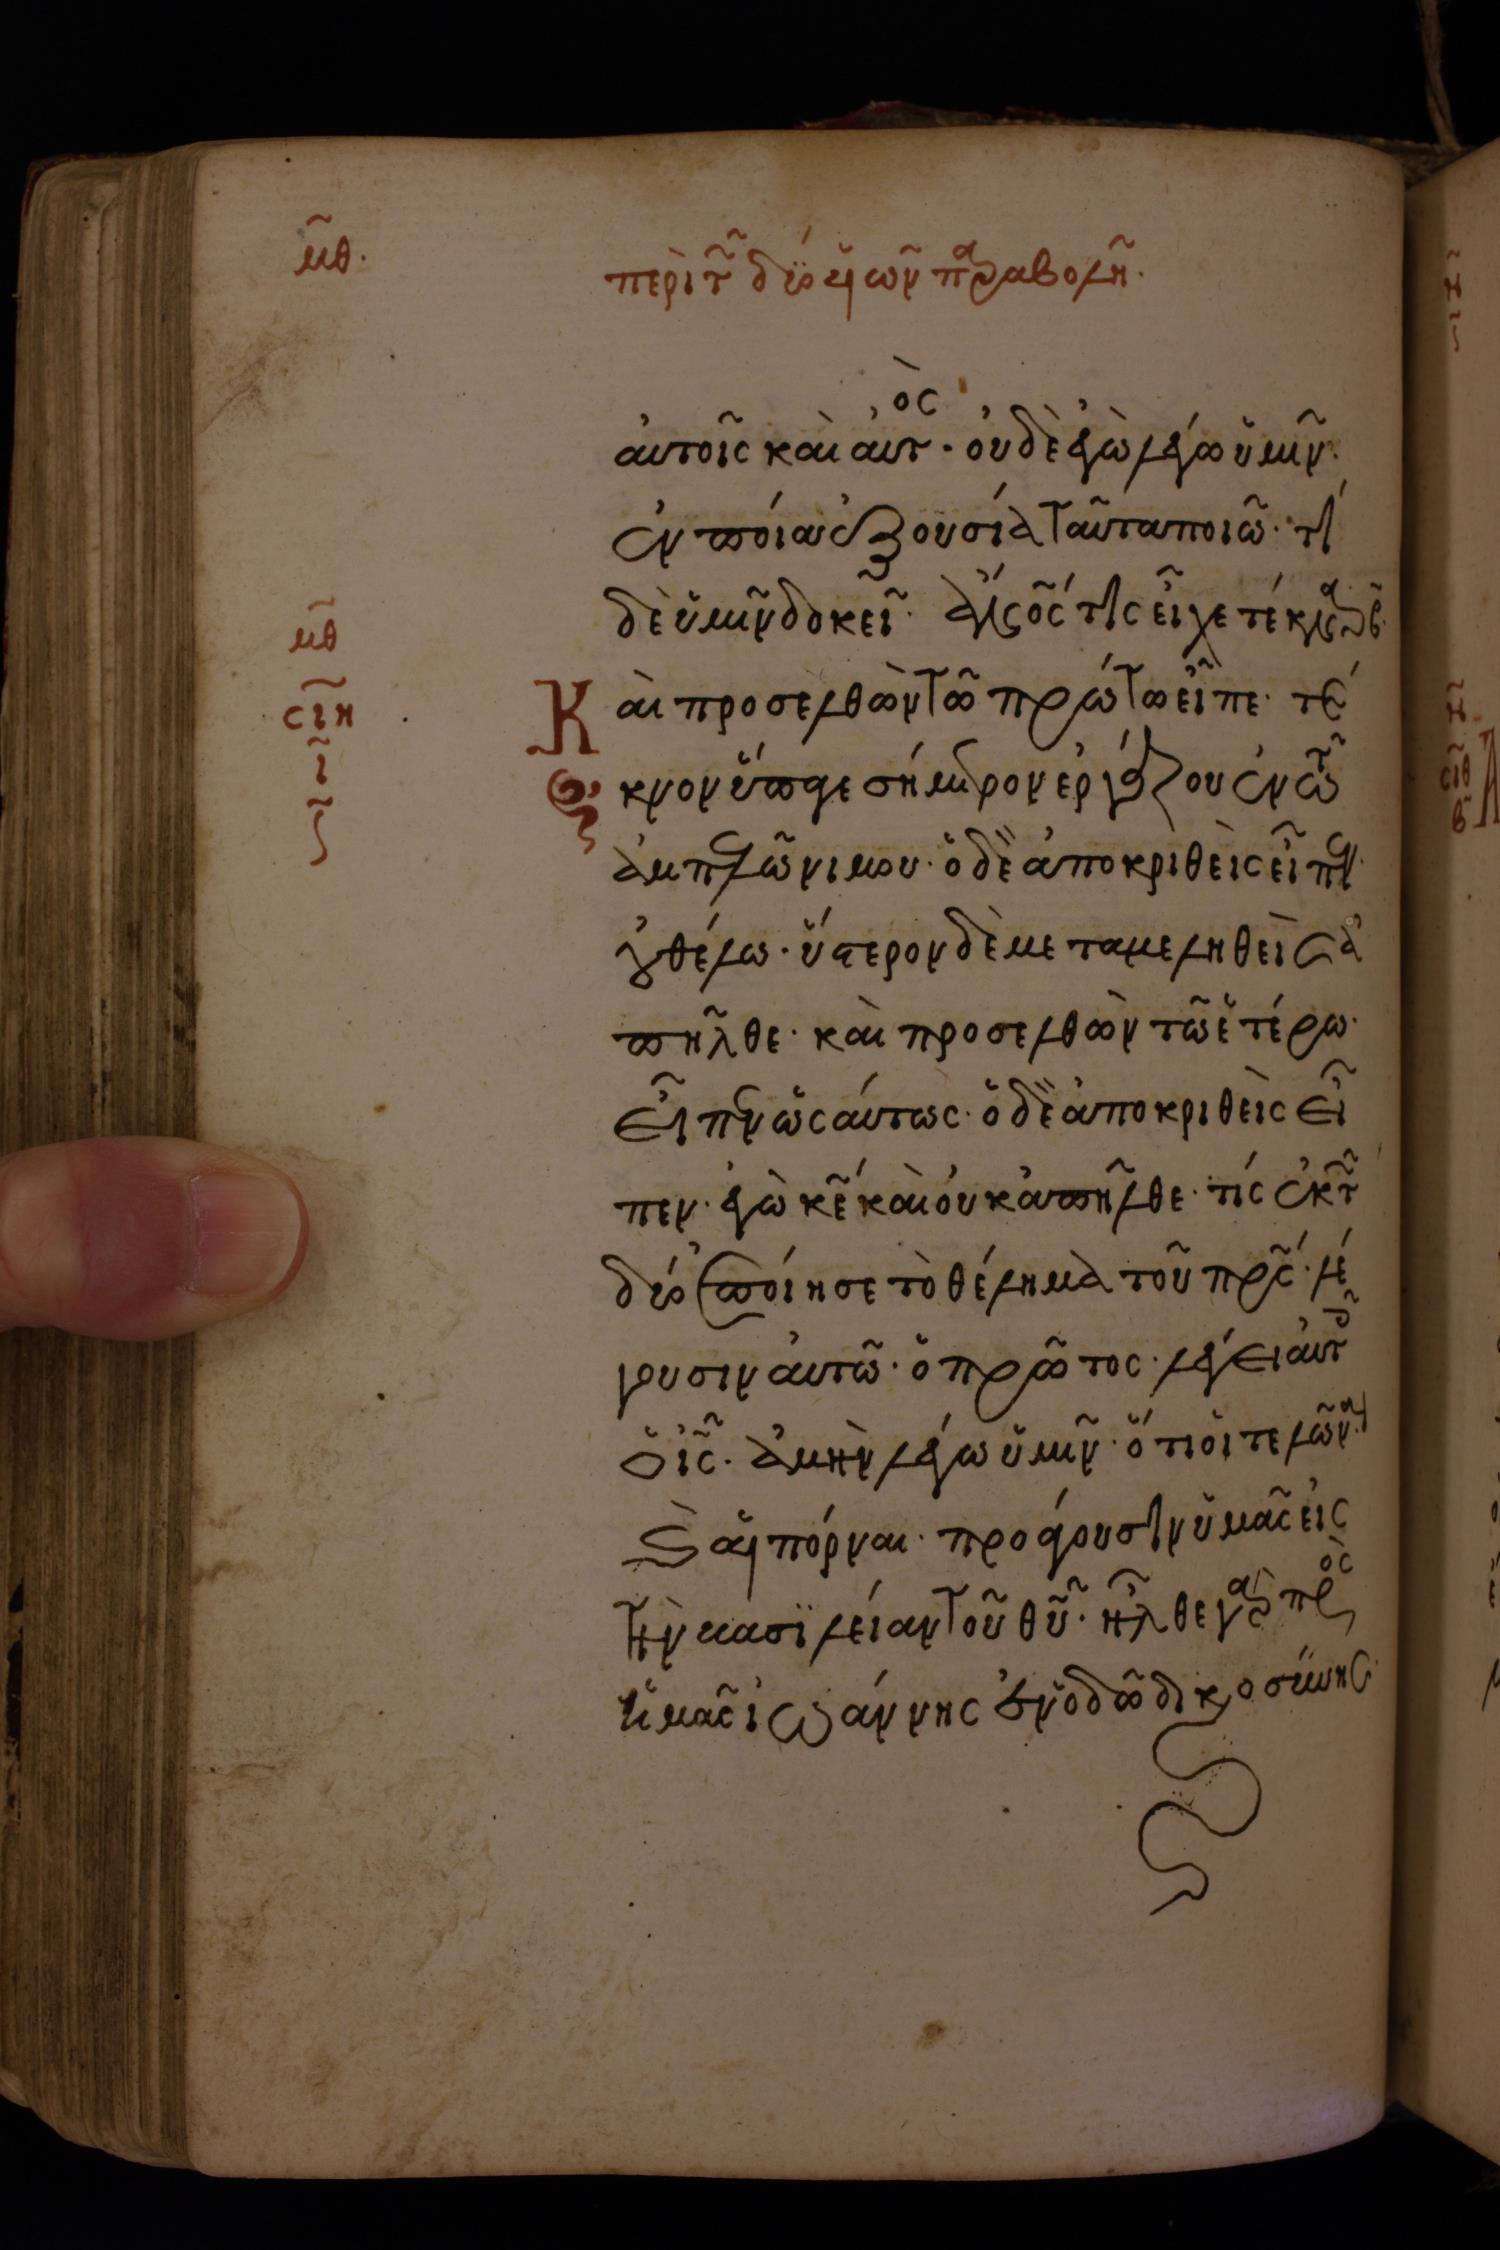 μ̃θ.
περὶ τ͂ δύο ϋἱῶν παραβολη̃.
αὐτοῖς καὶ αὐτὸς· οὐδὲ ἐγὼ λέγω ὑμῖν·
ἐν ποία ἐξουσία ταῦτα ποιῶ· τί
δὲ ὑμῖν δοκεῖ· ἄνος τίς εἶχε τέκνα β̃·
μ̃θ
Καὶ προσελθὼν τῶ πρώτω εἶπε· τέ
σ̃ιη
ῖ
κνον ὕπαγε σήμερον ἐργάζου ἐν τῶ
ἀμπελῶνι μου· ὁ δὲ ἀποκριθεὶς εἶπεν·
οὐ θέλω· ὕστερον δὲ μεταμεληθεὶς ἀ
πῆλθε· καὶ προσελθὼν τῶ ἑτέρω·
εἶπεν ὡσάυτως· ὁ δὲ ἀποκριθεὶς εἶ
πεν· ἐγὼ κ̃ε καὶ οὐκ ἀπῆλθε· τίς ἐκ τ͂
δύο ἐποίησε τὸ θέλημα τοῦ πρ̃ς· λέ
γουσιν αὐτῶ· ὁ πρῶτος· λέγει αὐτοῖς
ὁ ι̃ς· ἀμὴν λέγω ὑμῖν· ὅτι οἱ τελῶναι
καὶ αἱ πόρναι· προάγουσιν ὑμᾶς εἰς
τὴν βασϊλείαν τοῦ θ̃υ· ἦλθε γὰρ πρὸς
ὑμᾶς ἰωάννης ἐν ὁδῶ δικαιοσύνης·